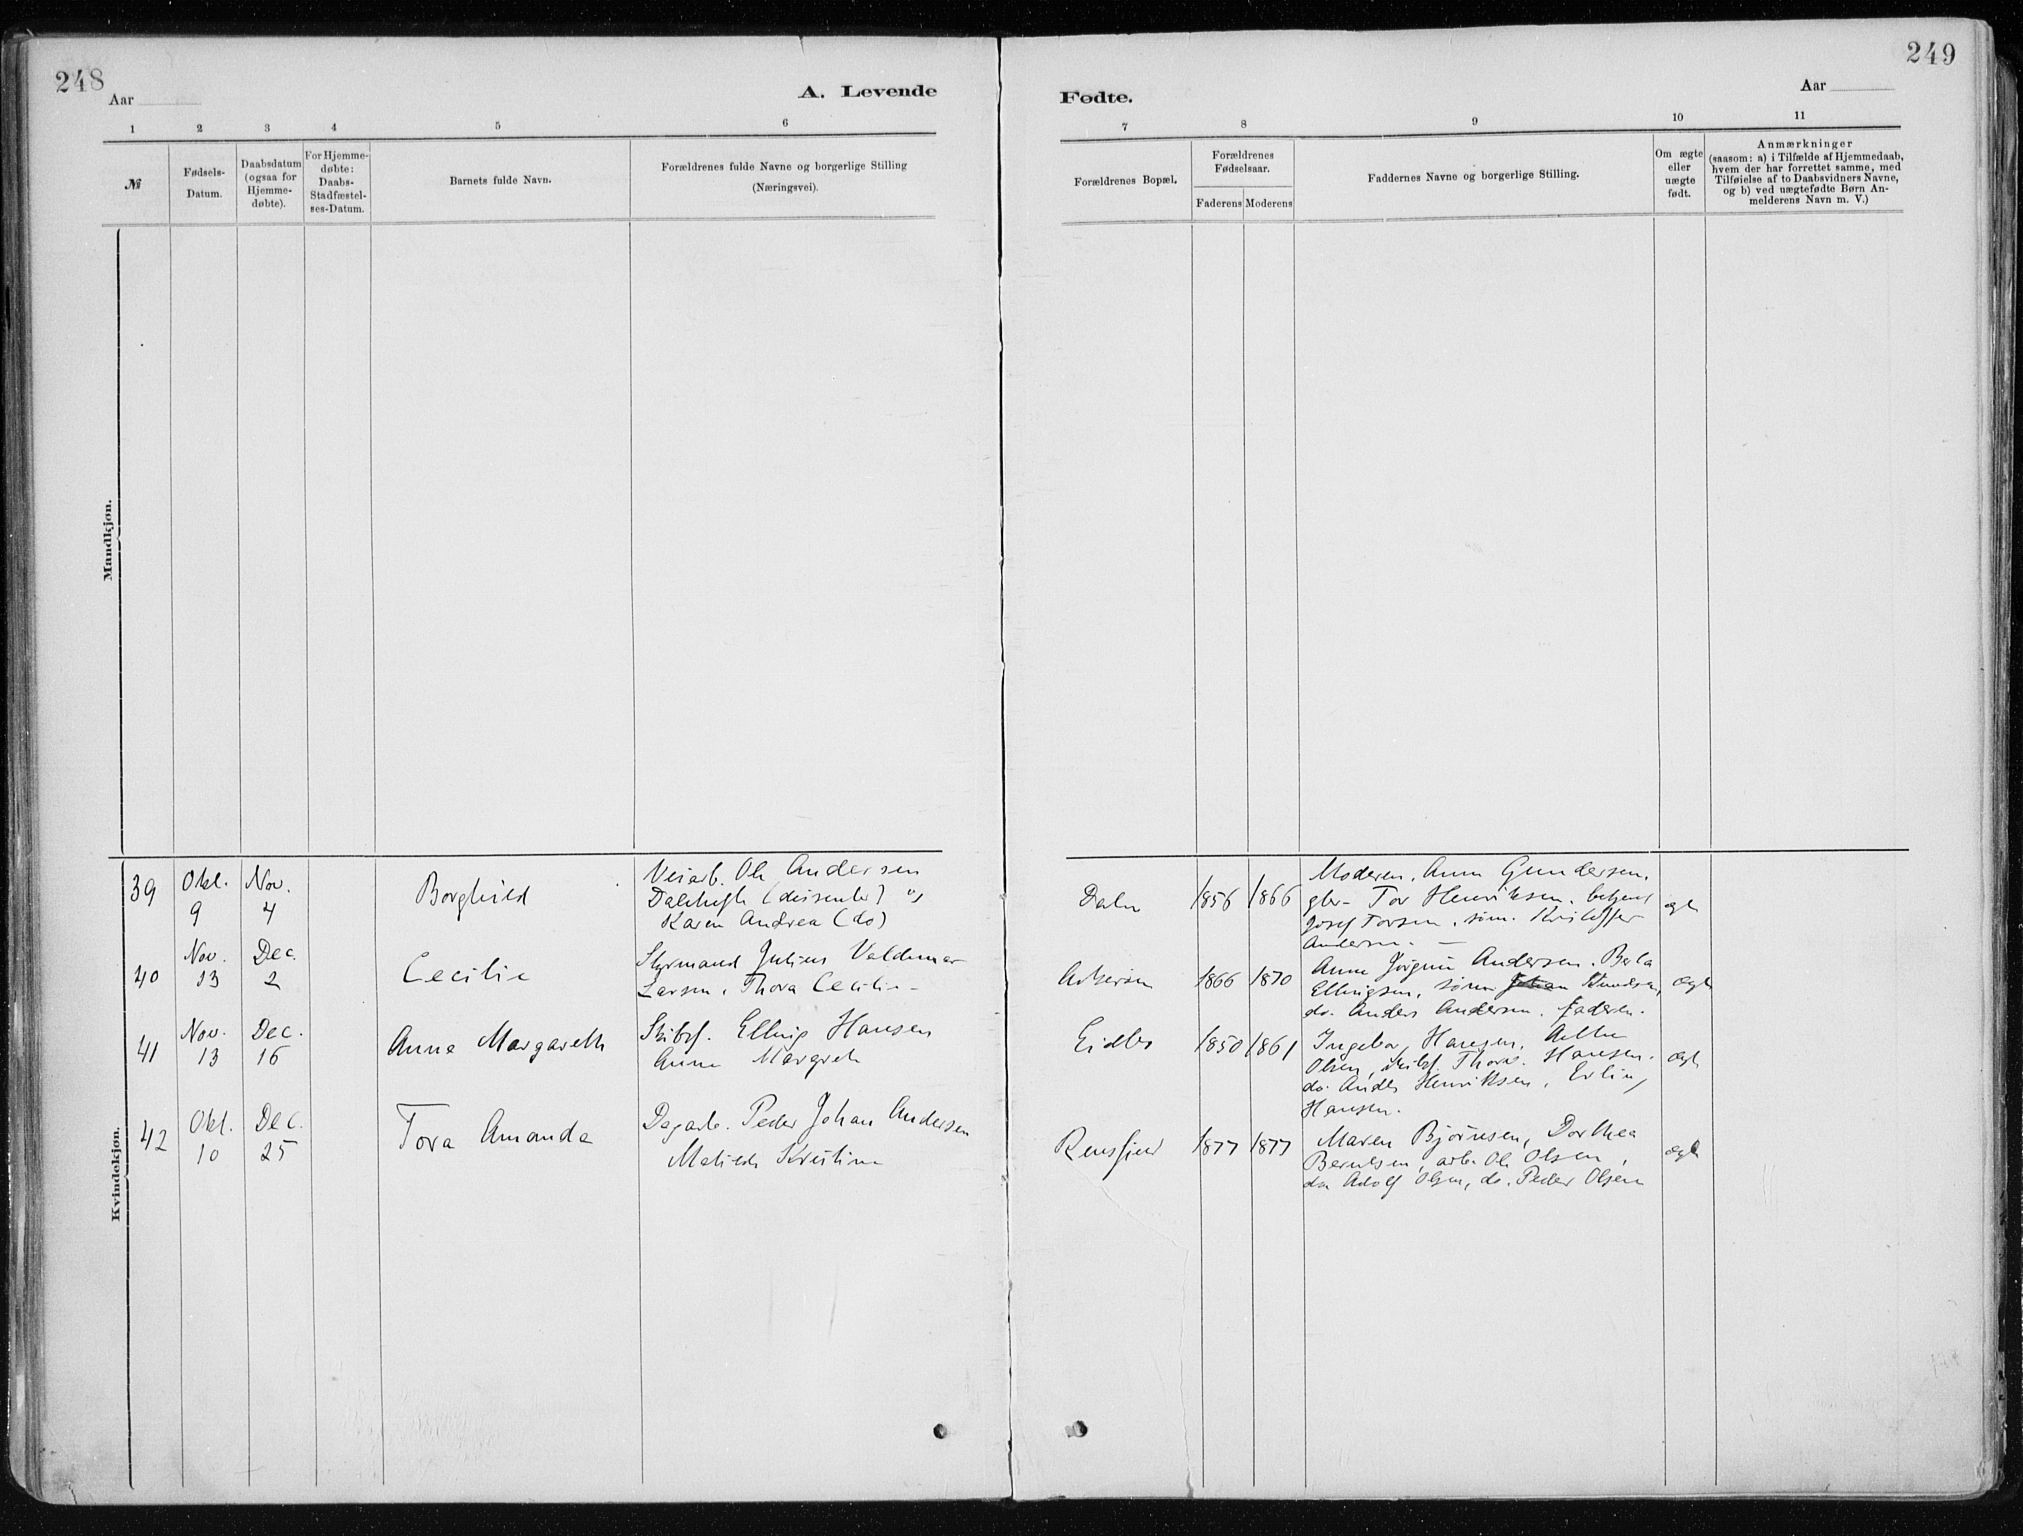 248
249
Aar
A. Levende
Fødte.
Aar
1
2
3
4
5
6
7
8
9
10
11
№
Fødsels-
Datum.
Daabsdatum
(ogsaa for
Hjemme-
døbte).
For Hjemme-
døbte:
Daabs-
Stadfæstel-
ses-Datum.
Barnets fulde Navn.
Forældrenes fulde Navne og borgerlige Stilling
(Næringsvei).
Forældrenes Bopæl.
Forældrenes
Fødselsaar.
Faderens
Moderens
Faddernes Navne og borgerlige Stilling.
Om ægte
eller
uægte
født.
Anmærkninger
(saasom: a) i Tilfælde af Hjemmedaab,
hvem der har forrettet samme, med
Tilføielse af to Daabsvidners Navne,
og b) ved uægtefødte Børn An-
melderens Navn m. V.)
Mandkjøn.
Kvindekjøn.
39
Okt.
9
Nov.
4
Borghild
Veiarb. Ole Andersen
(dissenter)
Karen Andrea (do)
1856
1866
Moderen, Anne Gundersen,
Tor Henriksen,
Josef Torsen, søm. Kristoffer
Andersen. —
ægte
40
Nov.
13
Dec.
2
Cecilie
Styrmand Julius Valdemar
Larsen, Thora Cecilie
1866
1870
Anne Jørgine Andersen, Berta
Ellingsen, søm. Johan Knudsen,
do. Anders Andersen. Faderen.
ægte
41
Nov.
13
Dec.
16
Anne Margareth
Skibsf. Elling Hansen
Anne Margrete
Eidbo
1850
1861
Ingebor Hansen,
Olsen, skibsf. Hansen.
do. Anders Henriksen,
Hansen.
ægte
42
Okt.
10
Dec.
25
Tora Amanda
Dagarb. Peder Johan Andersen
Matilde Kristine
1877
1877
Maren Bjørnsen, Dorthea
Berntsen, arb. Ole Olsen,
do. Adolf Olsen, do. Peder Olsen
ægte